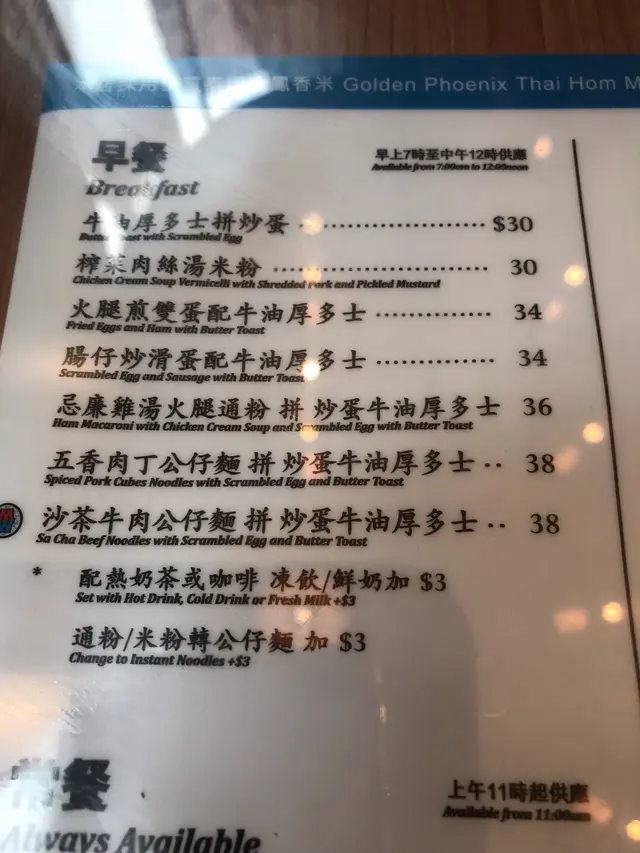 鳳香米 Golden Phoenix Thai Hom M
早餐
早上7時至中午12時供應
Breakfast
Available from 7:00am to 12:00noon
牛油厚多士拼炒蛋 ...................... $30
Butter Toast with Scrambled Egg
榨菜肉絲湯米粉 ............................ 30
Chicken Cream Soup Vermicelli with Shredded Pork and Pickled Mustard
火腿煎雙蛋配牛油厚多士 ............... 34
Fried Eggs and Ham with Butter Toast
腸仔炒滑蛋配牛油厚多士 ............... 34
Scrambled Egg and Sausage with Butter Toast
忌廉雞湯火腿通粉 拼 炒蛋牛油厚多士 36
Ham Macaroni with Chicken Cream Soup and Scrambled Egg with Butter Toast
五香肉丁公仔麵 拼 炒蛋牛油厚多士 .. 38
Spiced Pork Cubes Noodles with Scrambled Egg and Butter Toast
沙茶牛肉公仔麵 拼 炒蛋牛油厚多士 .. 38
Sa Cha Beef Noodles with Scrambled Egg and Butter Toast
* 配熱奶茶或咖啡 凍飲/鮮奶加 $3
Set with Hot Drink, Cold Drink or Fresh Milk +$3
通粉/米粉轉公仔麵 加 $3
Change to Instant Noodles +$3
常餐
上午11時起供應
Always Available
Available from 11:00am